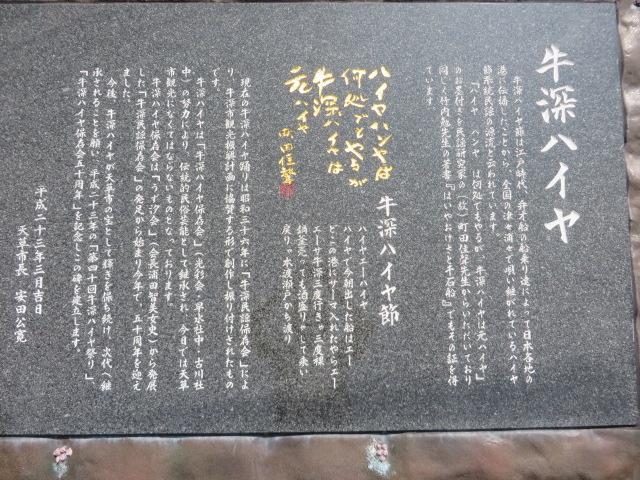 牛深ハイヤ
牛深ハイヤ節は江戸時代、弁才船の船乗り達によって日本各地の
港に伝播したことから、全国の津々浦々で唄い継がれているハイヤ
節系統民謡の源流と云われています。
「ハイヤ ハンヤ は何処でもやるが 牛深ハイヤは元ハイヤ」
のお墨付きを民謡研究家の(故)町田佳聲先生からいただいており
同じく竹内勉先生の著書『はいやおけさと千石船』でもその証を得
ています。
ハイヤハンヤは
何処でもやるが
牛深ハイヤは
元ハイヤ
町田佳聲
牛深ハイヤ節
ハイヤエーハイヤ
ハイヤで今朝出した船はエー
どこの港にサーマ入れたやらエー
エーヤ牛深三度行きゃ三度裸
鍋釜売っても酒盛りゃして来い
戻りゃ本渡瀬戸から渡り
現在の牛深ハイヤ踊りは昭和三十六年に「牛深民謡保存会」によ
り、牛深市観光振興計画に協賛する形で創作し振り付けされたもの
です。
牛深ハイヤは「牛深ハイヤ保存会」(光彩会・翠水社中・古川社
中)の努力により、伝統的民俗芸能として継承され、今日では天草
市観光になくてはならないものとなっております。
牛深ハイヤ保存会は「うず汐会」(会長浦田智美女史)から発展
した「牛深民謡保存会」の発足から始まり今年で、五十周年を迎え
ました。
今後、牛深ハイヤが天草市の宝として輝きを保ち続け、次代へ継
承されることを願い、平成二十三年の「第四十回牛深ハイヤ祭り」、
「牛深ハイヤ保存会五十周年」を記念しこの碑を建立します。
平成二十三年三月吉日
天草市長 安田公寛